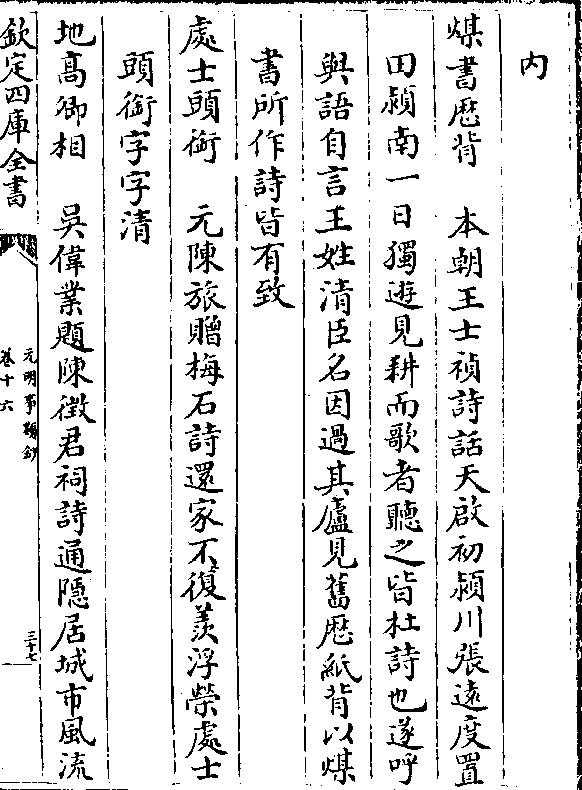 内
煤書厯背　本朝王士禎詩話天啟初潁川張逺度置
田潁南一日獨遊見耕而歌者聽之皆杜詩也遂呼
與語自言王姓清臣名因過其廬見舊厯紙背以煤
書所作詩皆有致
處士頭銜　元陳旅贈梅石詩還家不復羨浮榮處士
頭銜字字清
地高卿相　吳偉業題陳徵君祠詩通隠居城市風流
欽定四庫全書
元明事類鈔
卷十六
三十七